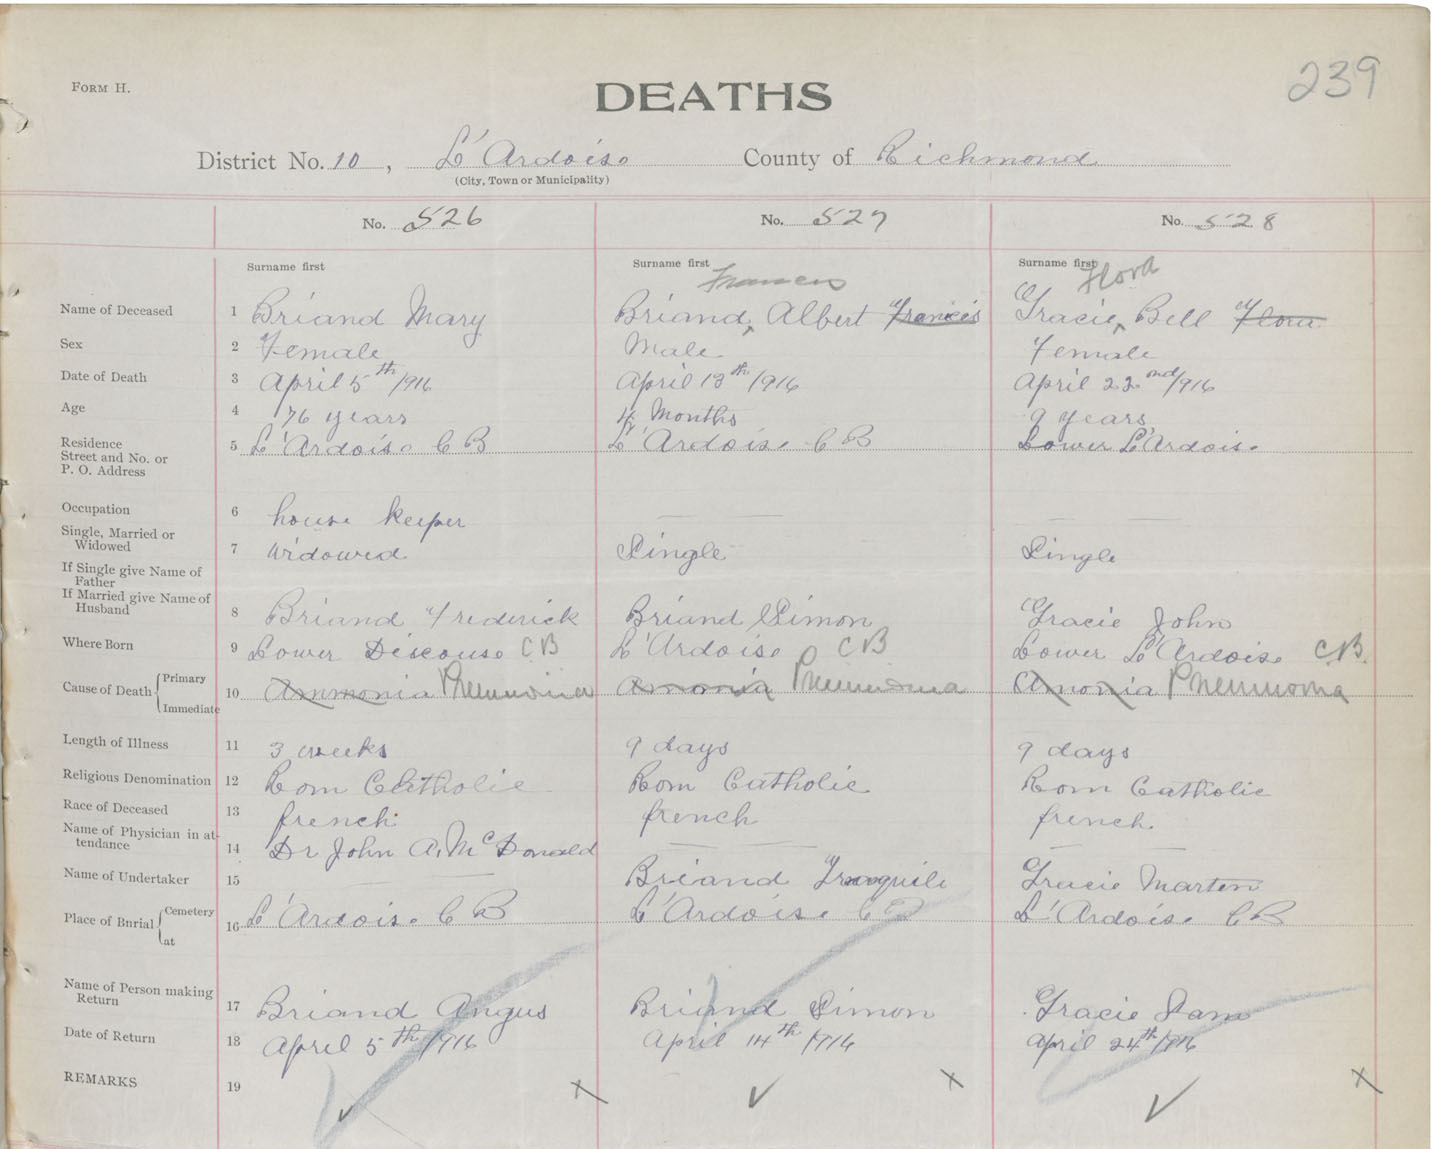 FORM H.
239
DEATHS
District No. 10, L'Ardoise County of Richmond
(City, Town or Municipality)
No. 526 No. 527 No. 528
Surname first Surname first Surname first
Francis Flora
Name of Deceased 1 Briand Mary Briand ‸ Albert Francis Gracie ‸ Bell Flora
Sex 2 Female Male Female
Date of Death 3 April 5th /916 April 13th /916 April 22nd /916
Age 4 76 years 4 Months 9 years
Residence
Street and No. or
P. O. Address
5 L'Ardoise C B L'Ardoise C B Lower L'Ardoise
Occupation 6 house keeper
Single, Married or
Widowed
7 Widowed Single Single
If Single give Name of
Father
If Married give Name of
Husband
8 Briand Frederick Briand Simon Gracie John
Where Born 9 Lower Discouse CB L'Ardoise CB Lower L'Ardoise C.B.
Cause of Death { Primary
Immediate
10 Ammonia Pneumonia Amonia Pneumonia Amonia Pneumonia
Length of Illness 11 3 weeks 9 days 9 days
Religious Denomination 12 Rom Catholic Rom Catholic Rom Catholic
Race of Deceased 13 french french french.
Name of Physician in at-
tendance
14 Dr John A. McDonald
Name of Undertaker 15 Briand Gracie Marten
Place of Burial { Cemetery
at
16 L'Ardoise C B L'Ardoise C B L'Ardoise C B
Name of Person making
Return
17 Briand Angus Briand Simon Gracie Sam
Date of Return 18 April 5th /916 April 14th /916 April 24th /916
REMARKS 19